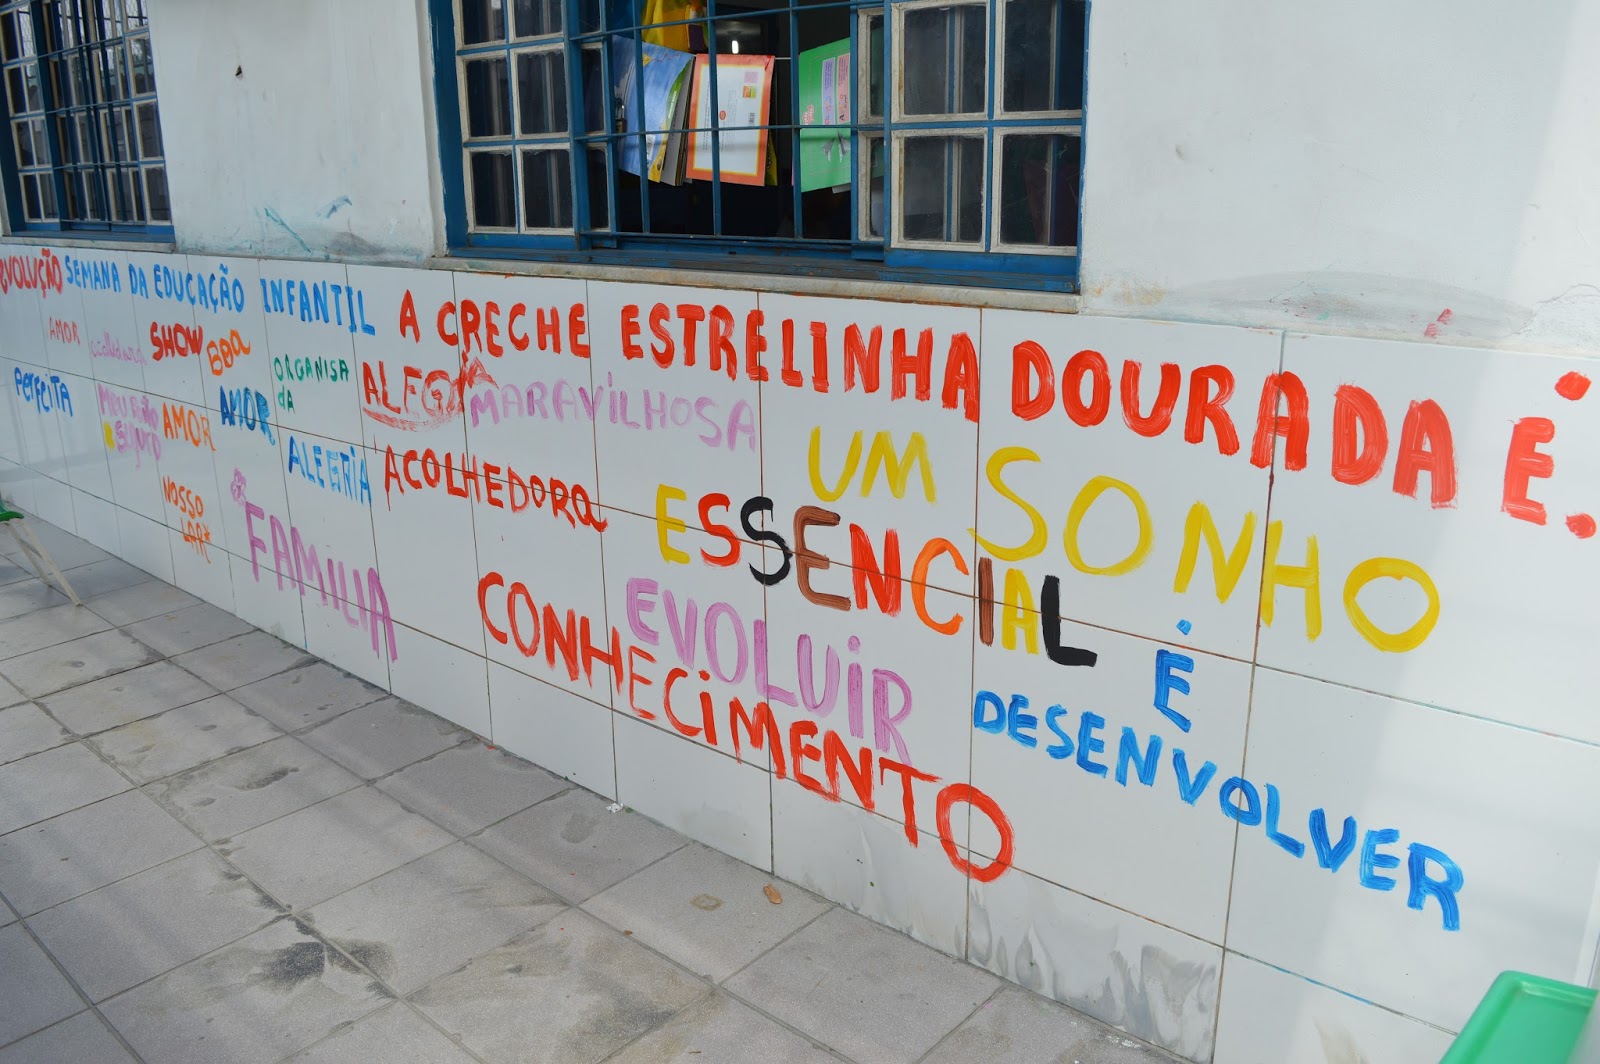 SEMANA DA EDUCAÇÃO INFANTIL
A CRECHE ESTRELINHA DOURADA É:
AMOR
SHOW
BOA
ORGANISA
DA
MARAVILHOSA
UM SONHO
PERFEITA
AMOR
AMOR
ALEGRIA
ACOLHEDORA
ESSENCIAL
NOSSO
LAR
FAMILIA
EVOLUIR
É
DESENVOLVER
CONHECIMENTO